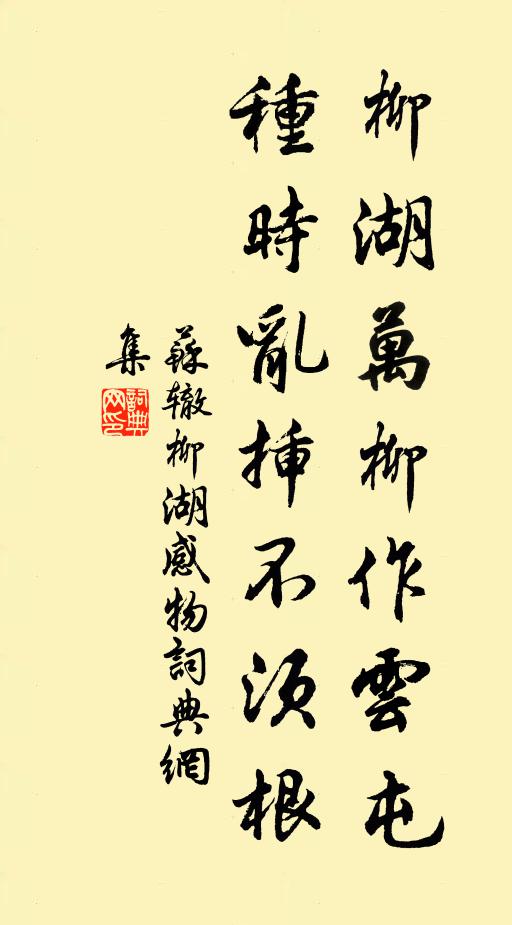 柳湖萬柳作雲屯
種時亂挿不須根
蘇辙柳湖感物詞典網
集
詞典
网印